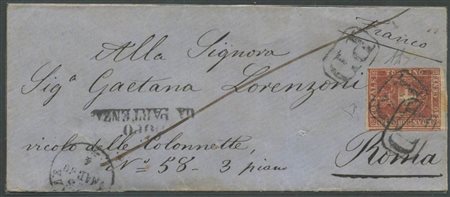 Franco
Alla Signora
Sigª Gaetana Lorenzoni
DA PARTENZA
vicolo delle Colonnette,
Nº 58 - 3 piano
Roma